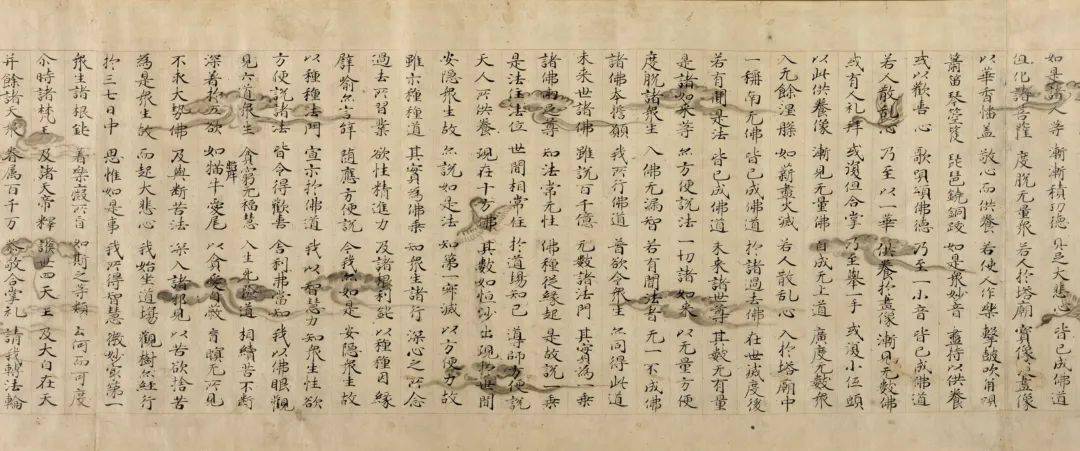 如是諸人等 漸漸積功德 具足大悲心 皆已成佛道
但化諸菩薩 度脫无量眾 若人於塔廟 寶像及畫像
以華香幡蓋 敬心而供養 若使人作樂 擊鼓吹角唄
簫笛琴箜篌 琵琶鐃銅鈸 如是眾妙音 盡持以供養
或以歡喜心 歌唄頌佛德 乃至一小音 皆已成佛道
若人散亂心 乃至以一華 供養於畫像 漸見无數佛
或有人礼拜 或復但合掌 乃至舉一手 或復小伍頭
以此供養像 漸見无量佛 自成无上道 廣度无數眾
入无餘涅槃 如薪盡火滅 若人散乱心 入於塔廟中
一稱南无佛 皆已成佛道 於諸過去佛 在世或滅度後
若有聞是法 皆已成佛道 未來諸世尊 其數无有量
是諸如來等 亦方便說法 一切諸如來 以无量方便
度脫諸眾生 入佛无漏智 若有聞法者 无一不成佛
諸佛本誓願 我所行佛道 普欲令眾生 亦同得此道
未來世諸佛 雖說百千億 无數諸法門 其實為一乘
諸佛兩足尊 知法常无性 佛種從緣起 是故說一乘
是法住法位 世間相常住 於道場知已 導師方便說
天人所供養 現在十方佛 其數如恒沙 出現於世間
安隱眾生故 亦說如是法 知第一寂滅 以方便力故
雖示種種道 其實為佛乘 知眾生諸行 深心之所念
過去所習業 欲性精進力 及諸根利鈍 以種種因緣
譬喻亦言辭 隨應方便說 今我亦如是 安隱眾生故
以種種法門 宣示於佛道 我以智慧力 知眾生性欲
方便說諸法 皆令得歡喜 舍利弗當知 我以佛眼觀
見六道眾生 貧窮无福慧 入生死險道 相續苦不斷
深著於五欲 如猫牛愛尾 以貪愛自蔽 盲瞑无所見
不求大勢佛 及與斷苦法 深入諸邪見 以苦欲捨苦
為是眾生故 而起大悲心 我始坐道場 觀樹亦經行
於三七日中 思惟如是事 我所得智慧 微妙最第一
眾生諸根鈍 著樂癡所盲 如斯之等類 云何而可度
尒時諸梵王 及諸天帝釋 護世四天王 及大自在天
并餘諸天眾 眷属百千万 恭敬合掌礼 請我轉法輪